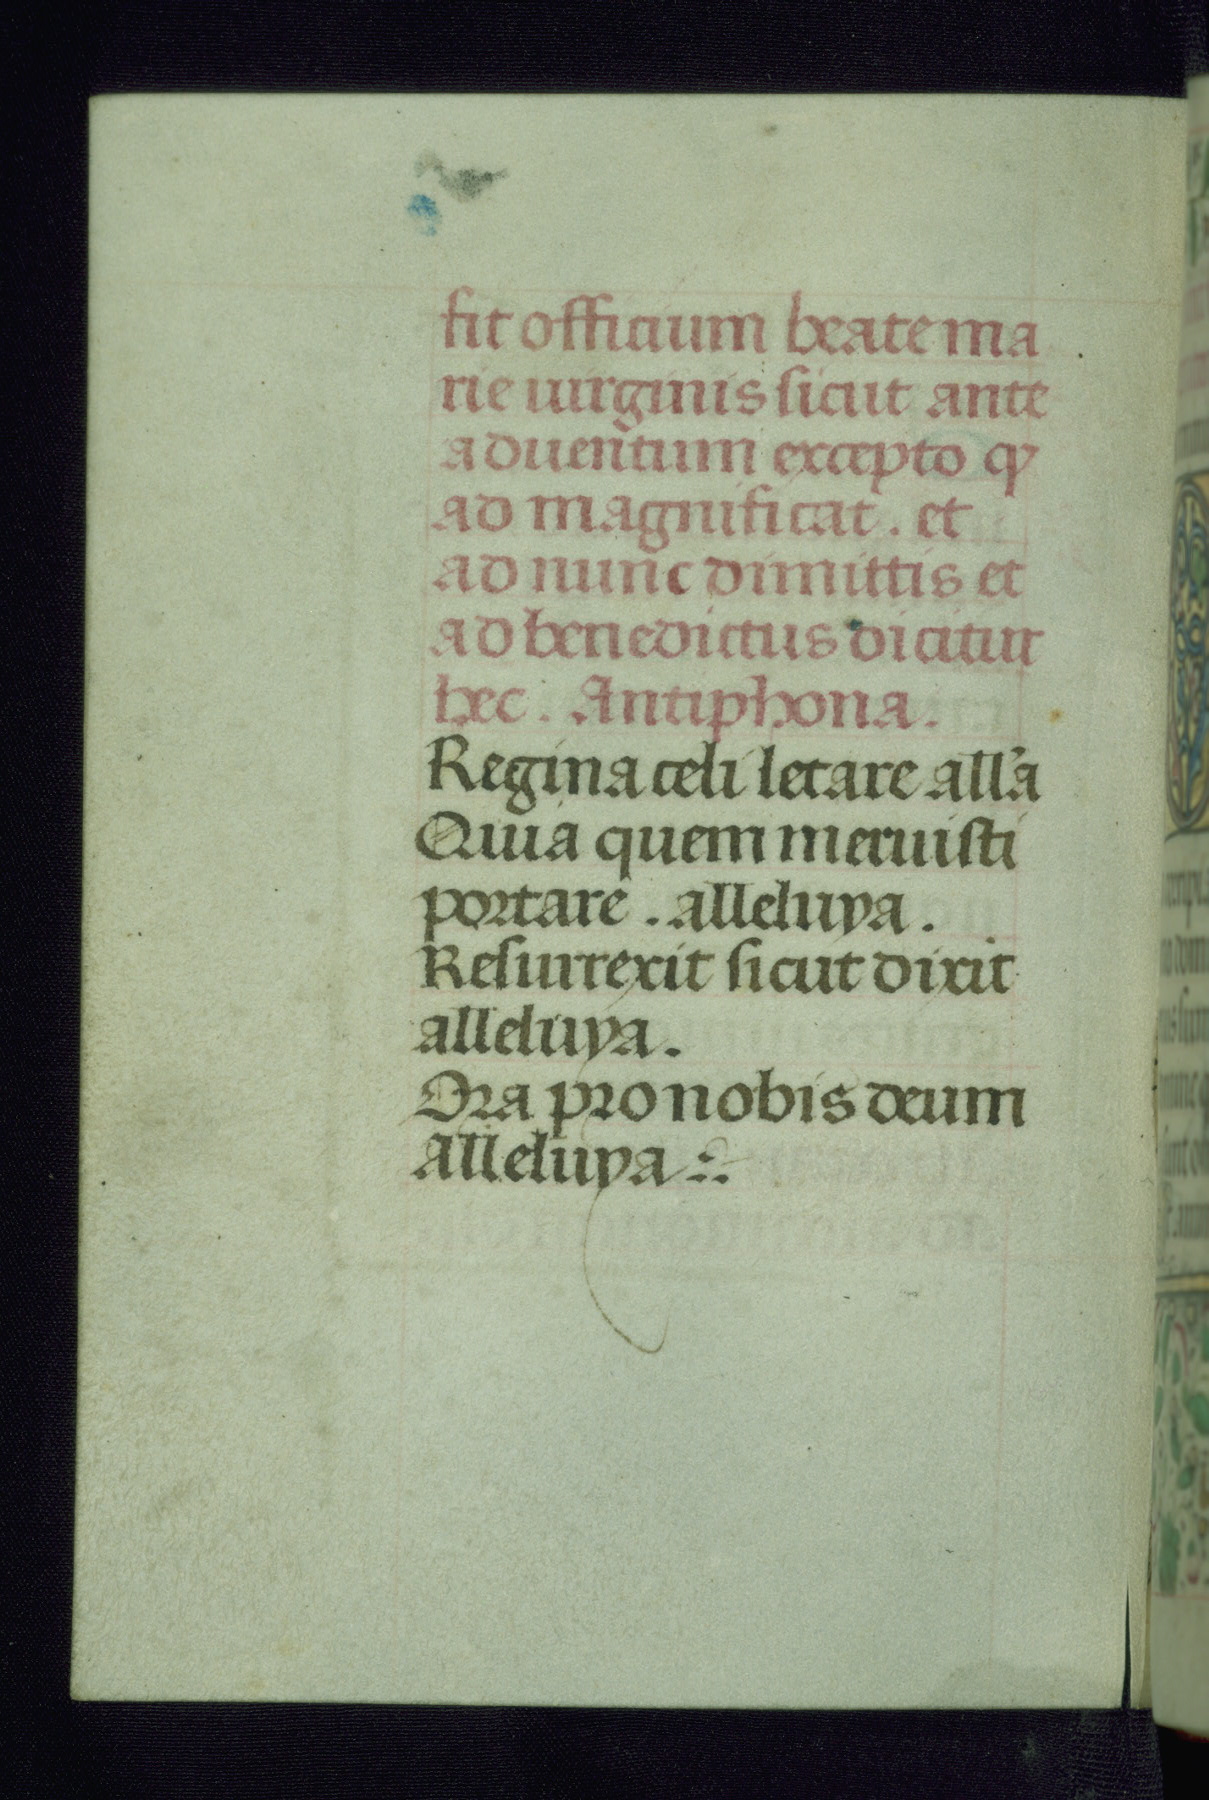 fit officium beate ma
rie uirginis sicut ante
aduentum excepto q
ad magnificat . et
ad nunc dimittis et
ad benedictus dicitur
hec . Antiphona .
Regina celi letare all'a
Quia quem meruisti
portare . alleluya .
Resurrexit sicut dixit
alleluya .
Ora pro nobis deum
alleluya